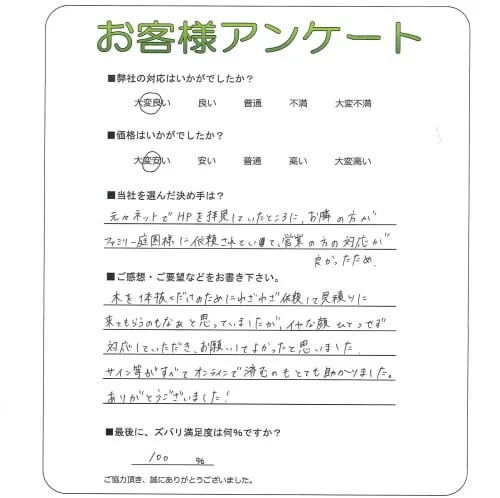 お客様アンケート
■弊社の対応はいかがでしたか？
大変良い 良い 普通 不満 大変不満
■価格はいかがでしたか？
大変安い 安い 普通 高い 大変高い
■当社を選んだ決め手は？
元々ネットでHPを拝見していたところに、お隣の方が
ファミリー庭園様に依頼されていて、営業の方の対応が
良かったため。
■ご感想・ご要望などをお書き下さい。
木を1本抜くだけのためにわざわざ依頼して見積りに
来てもらうのもなぁと思っていましたが、イヤな顔ひとつせず
対応していただき、お願いしてよかったと思いました。
サイン等がすべてオンラインで済むのもとても助かりました。
ありがとうございました！
■最後に、ズバリ満足度は何％ですか？
100 ％
ご協力頂き、誠にありがとうございました。